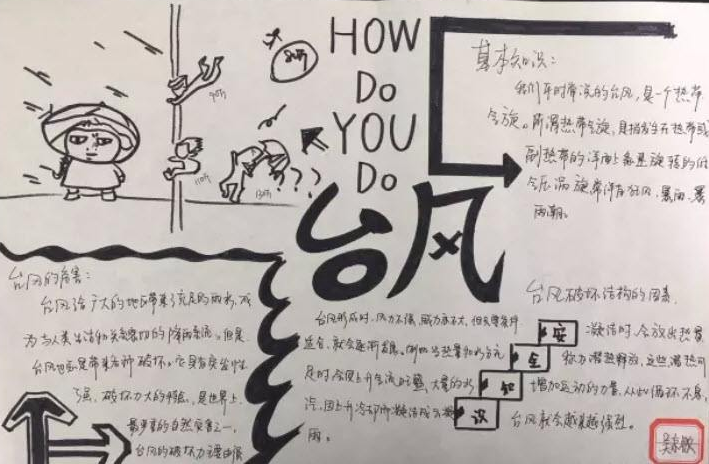 HOW
DO
YOU
DO
台风
80斤
90斤
110斤
130斤
???
基本知识:
我们平时常说的台风,是一个热带
气旋。所谓热带气旋,是指发生在热带或
副热带的洋面上
气压涡旋常伴有狂风、暴雨、暴
雨潮。
台风的危害:
台风给广大的地区带来了充足的雨水,成
为与人类生活和
台风也总是带来各种破坏,它具有突发性
强、破坏力大的特点,是世界上
最严重的自然灾害之一。
台风的破坏力主要由强
台风形成时,风力不强,威力亦不大,但只要条件
适合,就会逐渐发展。例如当热量和水分充
足时,令海上升气流旺盛,大量的水
汽,因上升冷却而凝结成云致
雨。
安
全
知
识
台风破坏结构的因素
凝结时,会放出热量
称为潜热释放,这些潜热可
增加运动的力量,从此循环不息,
台风就会越来越强烈。